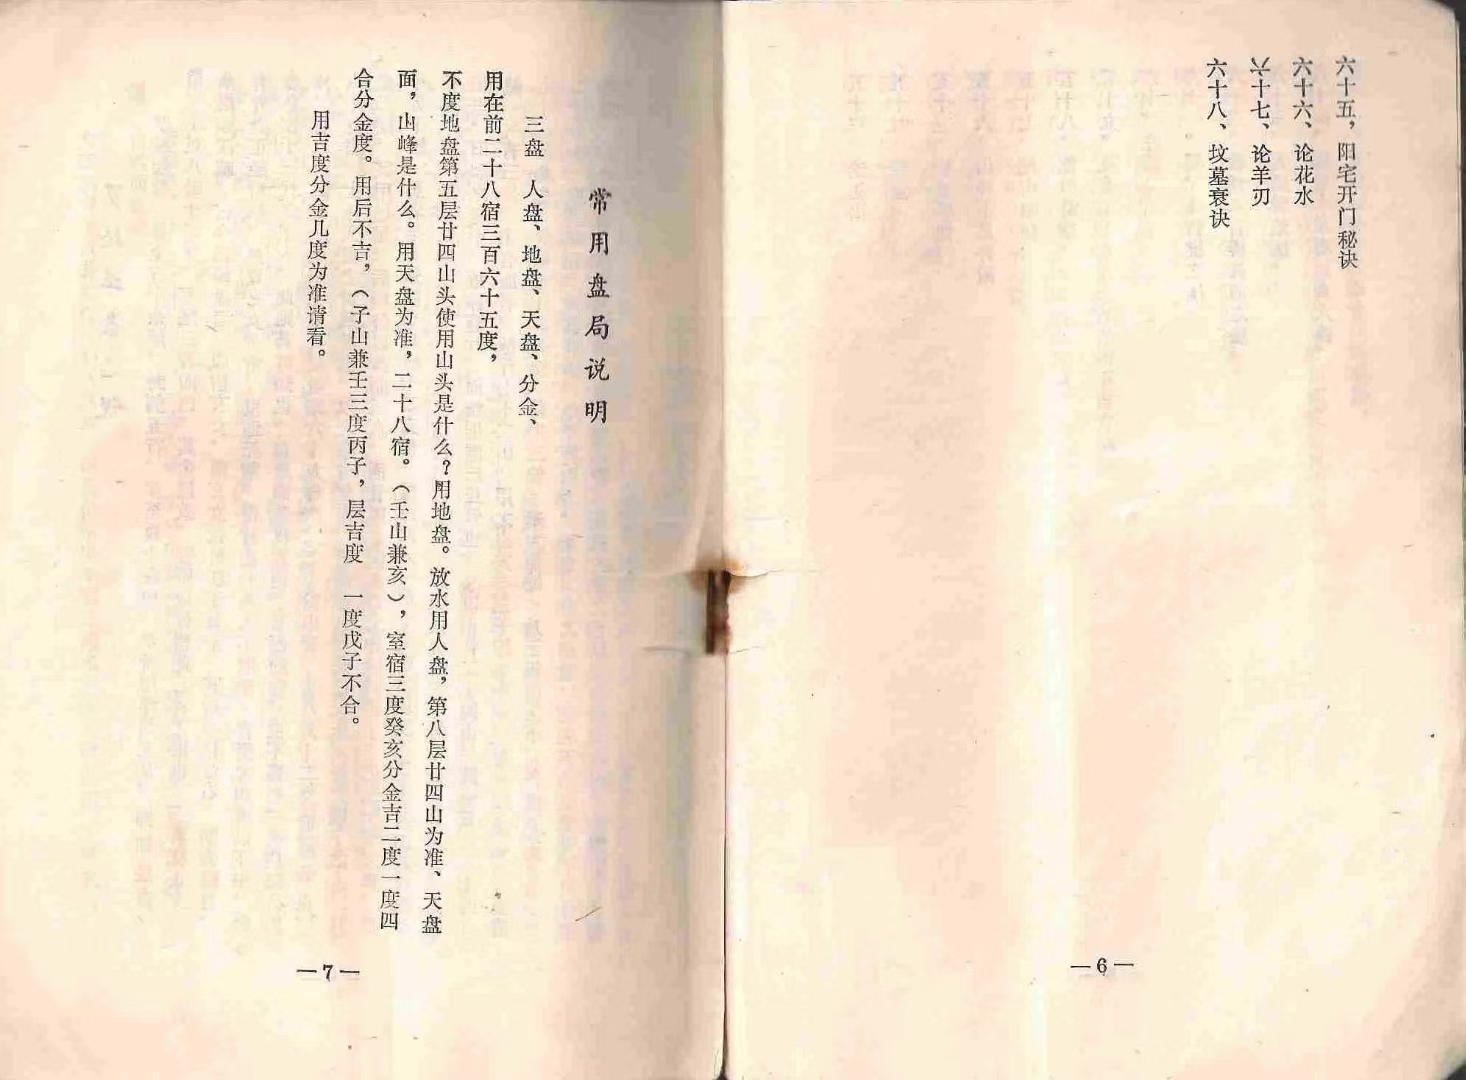 六十五，阳宅开门秘诀
六十六、论花水
六十七、论羊刃
六十八、坟墓衰诀
—6—
常用盘局说明
三盘 人盘、地盘、天盘、分金、
用在前二十八宿三百六十五度，
不度地盘第五层廿四山头使用山头是什么？用地盘。放水用人盘，第八层廿四山为准、天盘
面，山峰是什么。用天盘为准，二十八宿。（壬山兼亥），室宿三度癸亥分金吉二度一度四
合分金度。用后不吉，（子山兼壬三度丙子，层吉度 一度戊子不合。
用吉度分金几度为准请看。
—7—